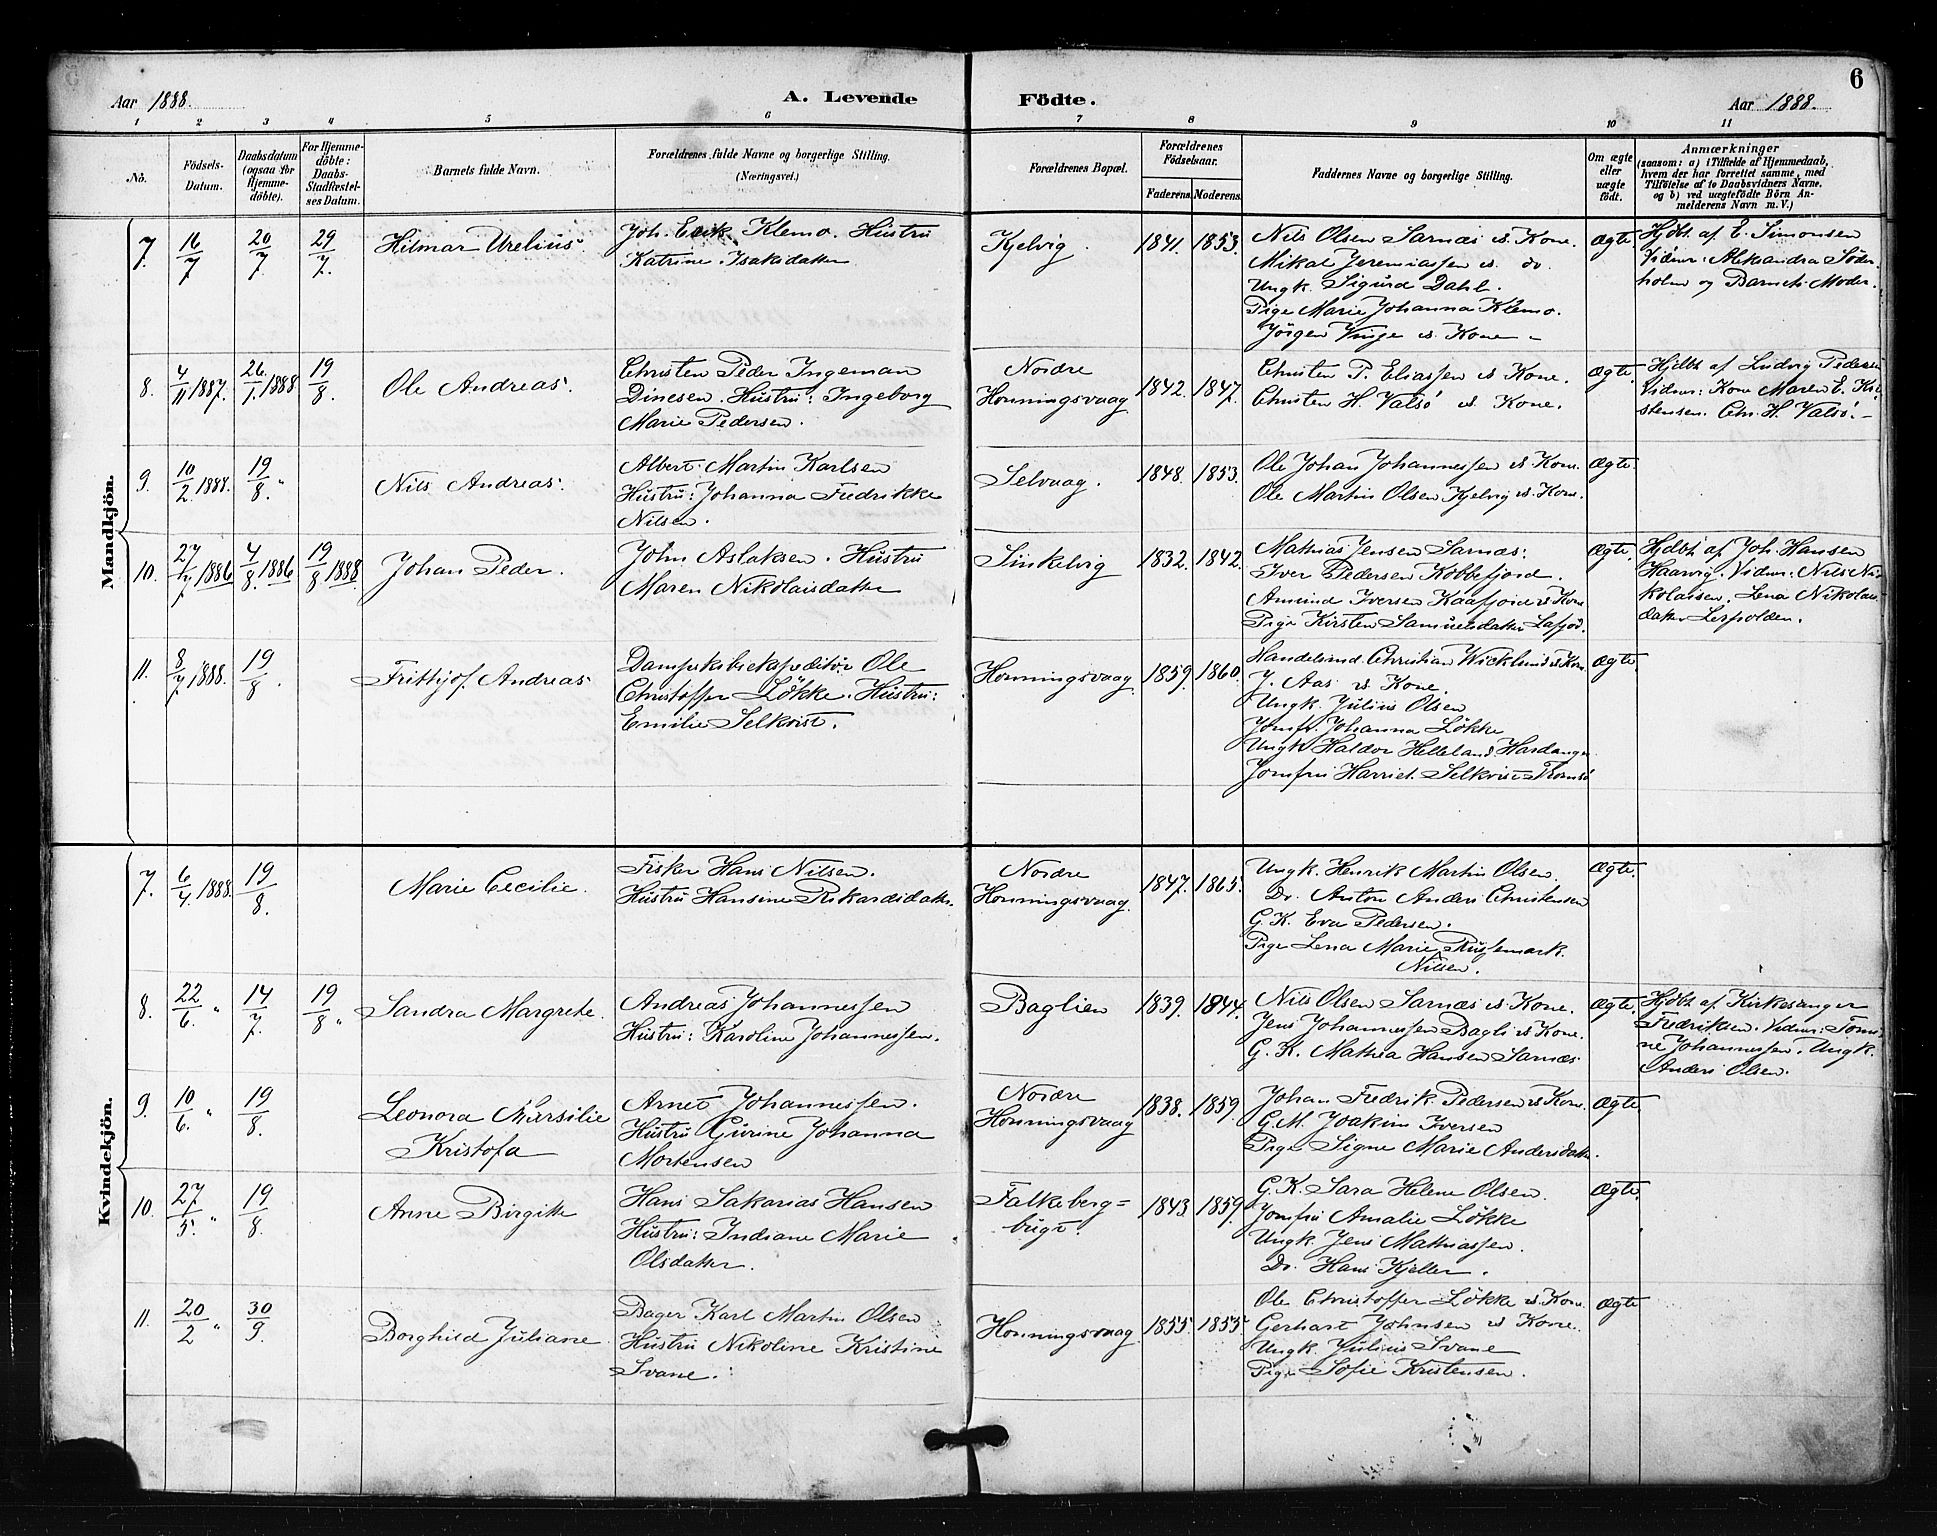 6
Aar 1888.
A. Levende
Födte.
Aar 1888.
1 2 3 4 5 6 7 8 9 10 11
No.
Födsels-
Datum.
Daabsdatum
(ogsaa for
Hjemme-
döbte).
For Hjemme-
döbte:
Daabs-
Stadfæstel-
ses Datum.
Barnets fulde Navn.
Forældrenes fulde Navne og borgerlige Stilling.
(Næringsvei.)
Forældrenes Bopæl.
Forældrenes
Födselsaar.
Faderens. Moderens.
Faddernes Navne og borgerlig Stilling.
Om ægte
eller
uægte
födt.
Anmærkninger
(saasom: a) i Tilfælde af Hjemmedaab,
hvem der har forrettet samme, med
Tilföielse af to Daabsvidners Navne,
og b) ved uægtefödte Börn An-
melderens Navn m. V.)
Mandkjön.
7. 16/7 20/7 29/7. Hilmar Urelius.
Joh. Erik Klemo. Hustru
Katrine Isaksdatter
Kjelvig 1841. 1853.
Nils Olsen Sarnæs & Kone.
Mikal Jeremiassen & do.
Ungk. Sigurd Dahl.
Pige Marie Johanna Klemo.
Jörgen Vinje & Kone
Ægte.
Hjdbt. af E. Simonsen
Vidner: Aleksandra Söder-
holm og Barnets Moder.
8. 4/11 1887. 26/1 1888 19/8. Ole Andreas.
Christen Peder Ingeman
Dinesen. Hustru: Ingeborg
Marie Pedersen.
Nordre
Honningsvaag 1842. 1847.
Christen P. Eliassen & Kone.
Christen H. Valsö & Kone.
Ægte.
Hjdbt af Ludvig Pedersen
Vidner: Kone Maren E. Kri-
stensen. Chr. H. Valsö.
9. 10/2 1888. 19/8 " Nils Andreas.
Albert Martin Karlsen
Hustru: Johanna Fredrikke
Nilsen.
Selvaag. 1848. 1853.
Ole Johan Johannessen & Kone.
Ole Martin Olsen Kjelvig & Kone.
Ægte.
10. 27/7 1886 4/8 1886 19/8 1888. Johan Peder.
John Aslaksen. Hustru
Maren Nikolaisdatter
Sinkelvig 1832. 1842.
Mathias Jensen Sarnæs.
Iver Pedersen Kobbefjord.
Amund Iversen Kaafjord & Kone
Pige Kirsten Samuelsdatter Lafjord.
Ægte.
Hjdbt. af Joh. Hansen
Haarvig. Vidner: Nils Ni-
kolaisen. Lena Nikolais-
datter Lerpolden.
11. 8/7 1888. 19/8. Frithjof Andreas
Dampskibsekspeditör Ole
Christoffer Lökke. Hustru:
Emilie Selkvist.
Honningsvaag 1859. 1860.
Handelsmd. Christian Wicklund & Kone.
J. Aas & Kone.
Ungk. Julius Olsen
Jomfr. Johanna Lökke
Ungk Haldor Helleland, Hardanger
Jomfru Harriet Selkvist Tromsö
Ægte
Kvindekjön.
7. 6/4 1888. 19/8. Marie Cecilie.
Fisker Hans Nilsen.
Hustru Hansine Rikardsdatter.
Nordre
Honningsvaag. 1847. 1865.
Ungk. Henrik Martin Olsen.
Do. Anton Anders Christensen
G. K. Eva Pedersen.
Pige Lena Marie
Nilsen.
Ægte.
8. 22/6 " 14/7. 19/8 " Sandra Margrete.
Andreas Johannessen
Hustru: Karoline Johannessen.
Baglien 1839. 1844.
Nils Olsen Sarnæs & Kone.
Jens Johannessen Bagli & Kone.
G. K. Mathea Hansen Sarnæs.
Ægte.
Hjdbt af Kirkesanger
Fredriksen. Vidner: Tomi-
ne Johannessen. Ungk.
Anders Olsen.
9. 10/6 " 19/8. Leonora Marsilie
Kristofa
Arnet Johannessen.
Hustru Gurine Johanna
Mortensen
Nordre
Honningsvaag 1838. 1859.
Johan Fredrik Pedersen & Kone.
G. M. Joakim Iversen
Pige Signe Marie Andersdatter.
Ægte
10. 27/5. " 19/8. Anne Birgitte
Hans Sakarias Hansen
Hustru: Indiane Marie
Olsdatter.
Falkeberg=
bugt. 1843. 1859.
G. K. Sara Helene Olsen.
Jomfru Amalie Lökke
Ungk. Jens Mathiassen.
Do. Hans Kjeller.
Ægte.
11. 20/2 " 30/9. Borghild Juliane
Bager Karl Martin Olsen
Hustru Nikoline Kristine
Svane.
Honningsvaag 1855. 1855.
Ole Christoffer Lökke & Kone
Gerhart Johnsen & Kone.
Ungk. Julius Svane
Pige Sofie Kristensen.
Ægte